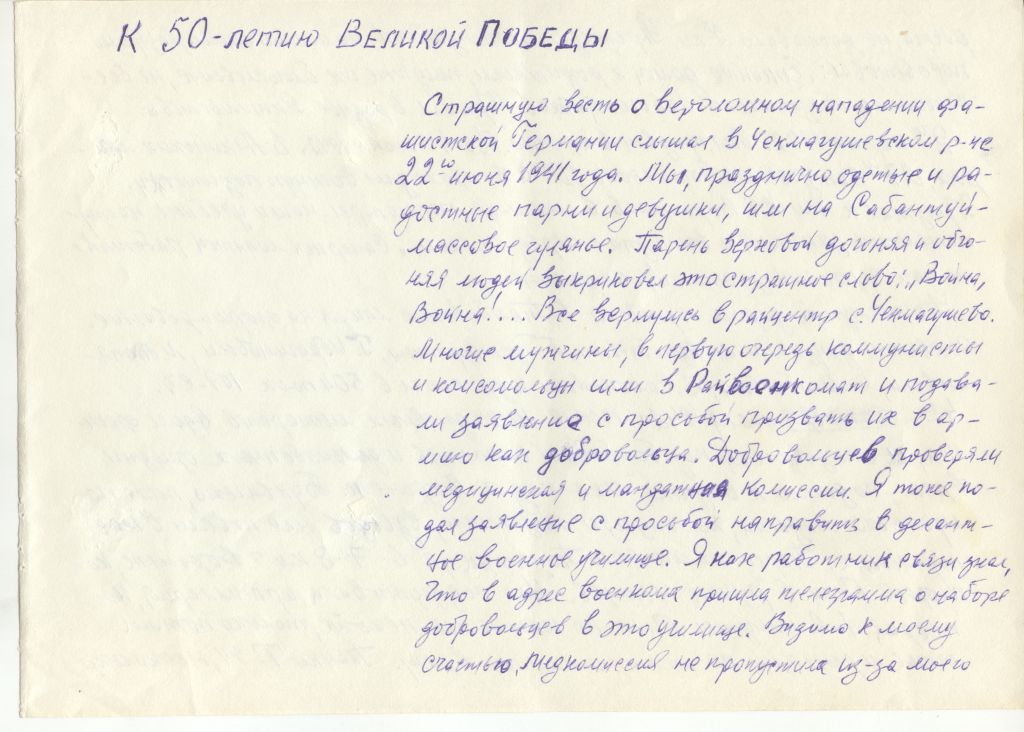 К 50-летию Великой Победы
Страшную весть о вероломном нападении фа-
шистской Германии слышал в Чекмагушевском р-не
22го июня 1941 года. Мы, празднично одетые и ра-
достные парни и девушки, шли на Сабантуй-
массовое гулянье. Парень верховой догоняя и обго-
няя людей выкриковал это страшное слово: „Война,
Война!... Все вернулись в райцентр с. Чекмагушево.
Многие мужчины, в первую очередь коммунисты
и комсомольцы шли в Райвоенкомат и подава-
ли заявление с просьбой призвать их в ар-
мию как добровольца. Добровольцев проверяли
медицинская и мандатная комиссии. Я тоже по-
дал заявление с просьбой направить в десант-
ное военное училище. Я как работник связи знал,
что в адрес военкома пришла телеграмма о наборе
добровольцев в это училище. Видимо к моему
счастью, медкомиссия не пропустила из-за моего